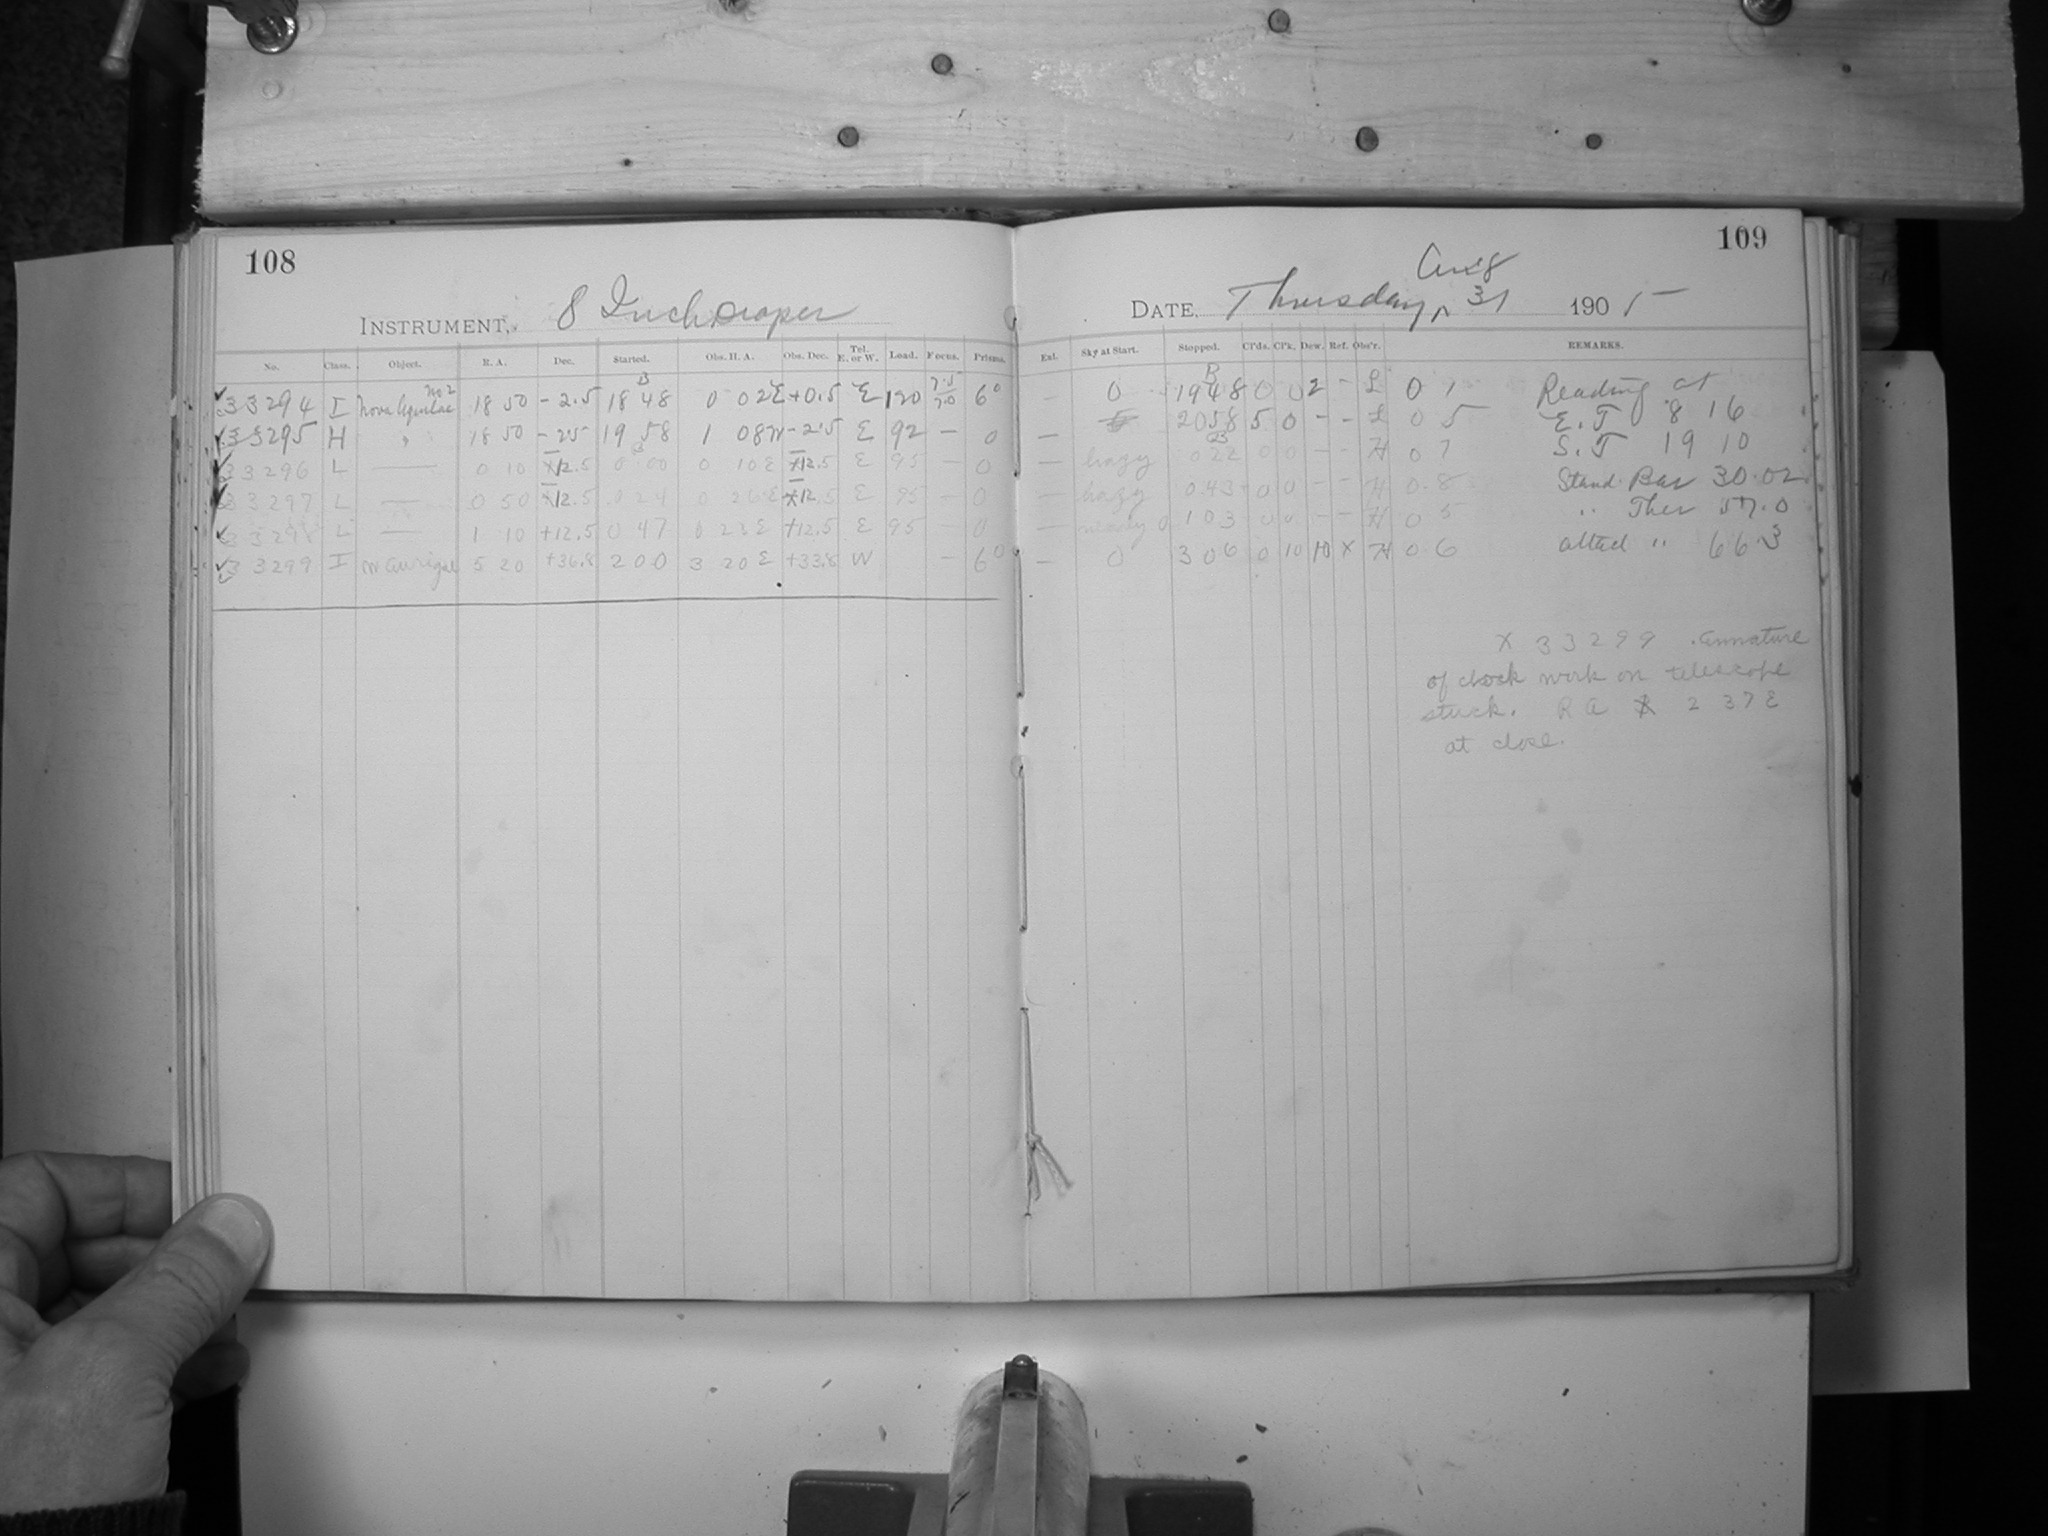 108
INSTRUMENT, 8 Inch Draper
No. Class. Object. R. A. Dec. Started. Obs. H. A. Obs. Dec. Tel. E. or W. Load. Focus. Prisms.
33294 I Nova Aquilae No 2 18 50 -2.5 18 48 B 0 02 E +0.5 E 120 7.5 7.0 6°
33295 H " 18 50 -2.5 19 58 1 08 W -2.5 E 92 — 0
33296 L — 0 10 -12.5 0 00 B 0 10 E -12.5 E 95 — 0
33297 L — 0 50 -12.5 0 24 0 26 E -12.5 E 95 — 0
33298 L — 1 10 +12.5 0 47 0 23 E +12.5 E 95 0
33299 I Aurigae 5 20 +36.8 2 00 3 20 E +33.8 W — 6°
109
DATE, Thursday, Aug 31 1905
Ext. Sky at Start. Stopped. Cl'ds. Cl'k. Dew. Ref. Obs'r. REMARKS.
— 0 19 48 B 0 0 2 - L 0 1 Reading at
20 58 5 0 - - L 0 5 E. T 8 16
— hazy 0 22 B 0 0 - - H 0 7 S. T 19 10
— hazy 0 43 0 0 - - H 0 8 Stand. Bar 30.02
— 1 03 0 0 - - H 0 5 " Ther 57.0
— 0 3 06 0 10 10 X H 0 6 attad " 66.3
X 33299 . armature
of clock work on telescope
stuck. R A 2 37 E
at close.